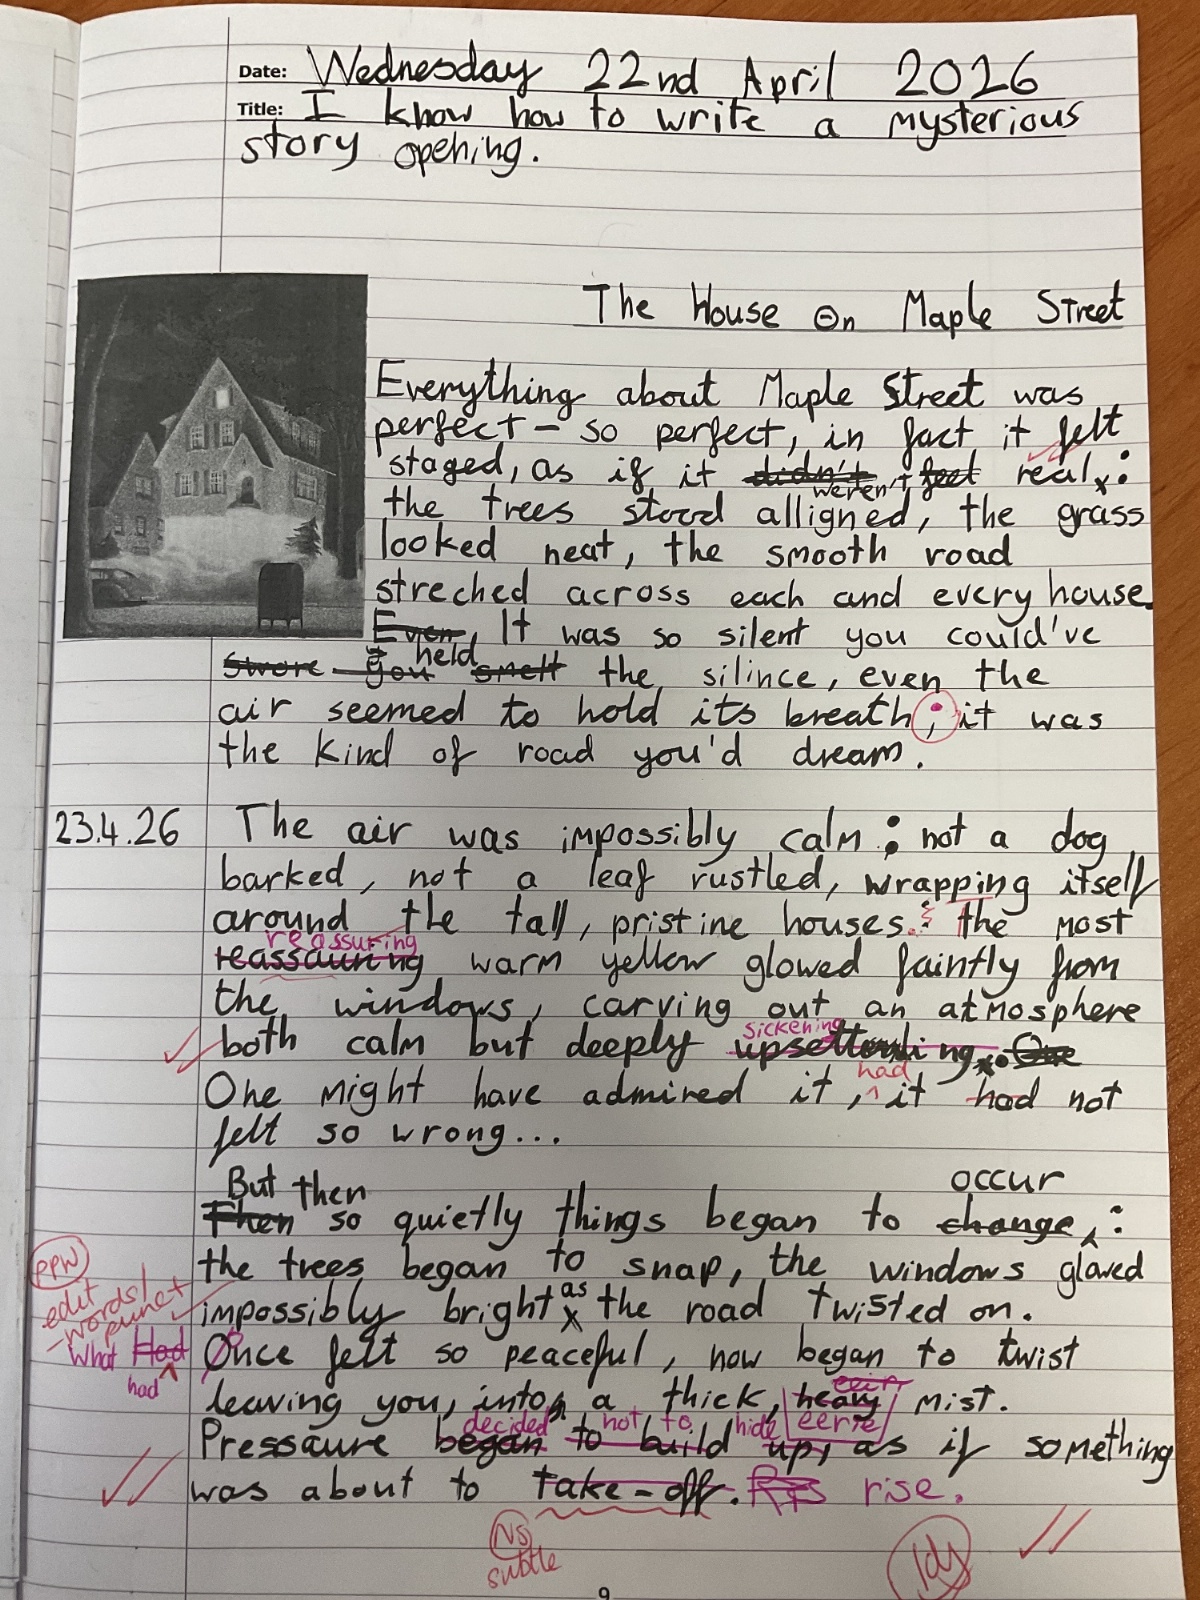 Date: Wednesday 22nd April 2026
Title: I know how to write a mysterious
story opening.
The House On Maple Street
Everything about Maple Street was
perfect – so perfect, in fact it felt
staged, as if it didn't weren't feel real:
the trees stood alligned, the grass
looked neat, the smooth road
streched across each and every house.
Even, It was so silent you could've
swore you held smelt the silince, even the
air seemed to hold its breath; it was
the kind of road you'd dream.
23.4.26 The air was impossibly calm: not a dog
barked, not a leaf rustled, wrapping itself
around the tall, pristine houses: the most
reassuring
reassauring warm yellow glowed faintly from
the windows, carving out an atmosphere
sickening
both calm but deeply . One
had
One might have admired it, ^ it had not
felt so wrong...
But then occur
Then so quietly things began to change, :
the trees began to snap, the windows glowed
as
impossibly bright x the road twisted on.
PPW
edit
-words/
punct
What Had
had
Once felt so peaceful, now began to twist
eeir
leaving you, into a thick, heavy mist.
decided not to hide eerie
Pressaure began to build up, as if something
was about to take-off. rise.
NS
subtle
9